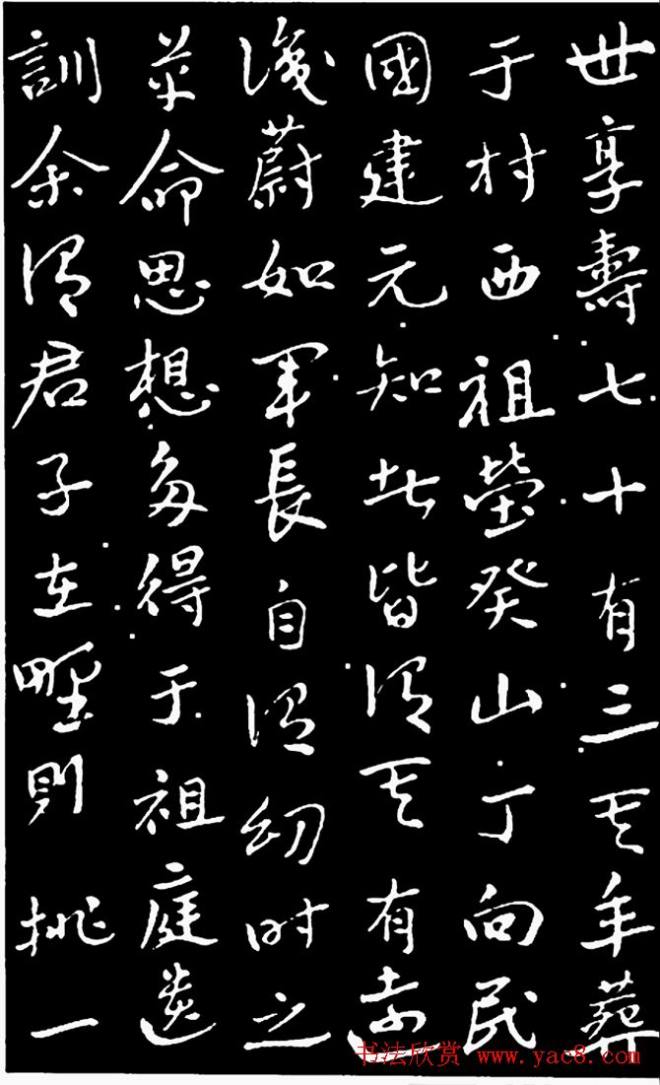 世享壽七十有三其年葬
于村西祖塋癸山丁向民
國建元知者皆謂其有遠
識蔚如軍長自謂幼時之
革命思想多得于祖庭遺
訓余謂君子在野則挑一
书法欣赏 www.yac8.com